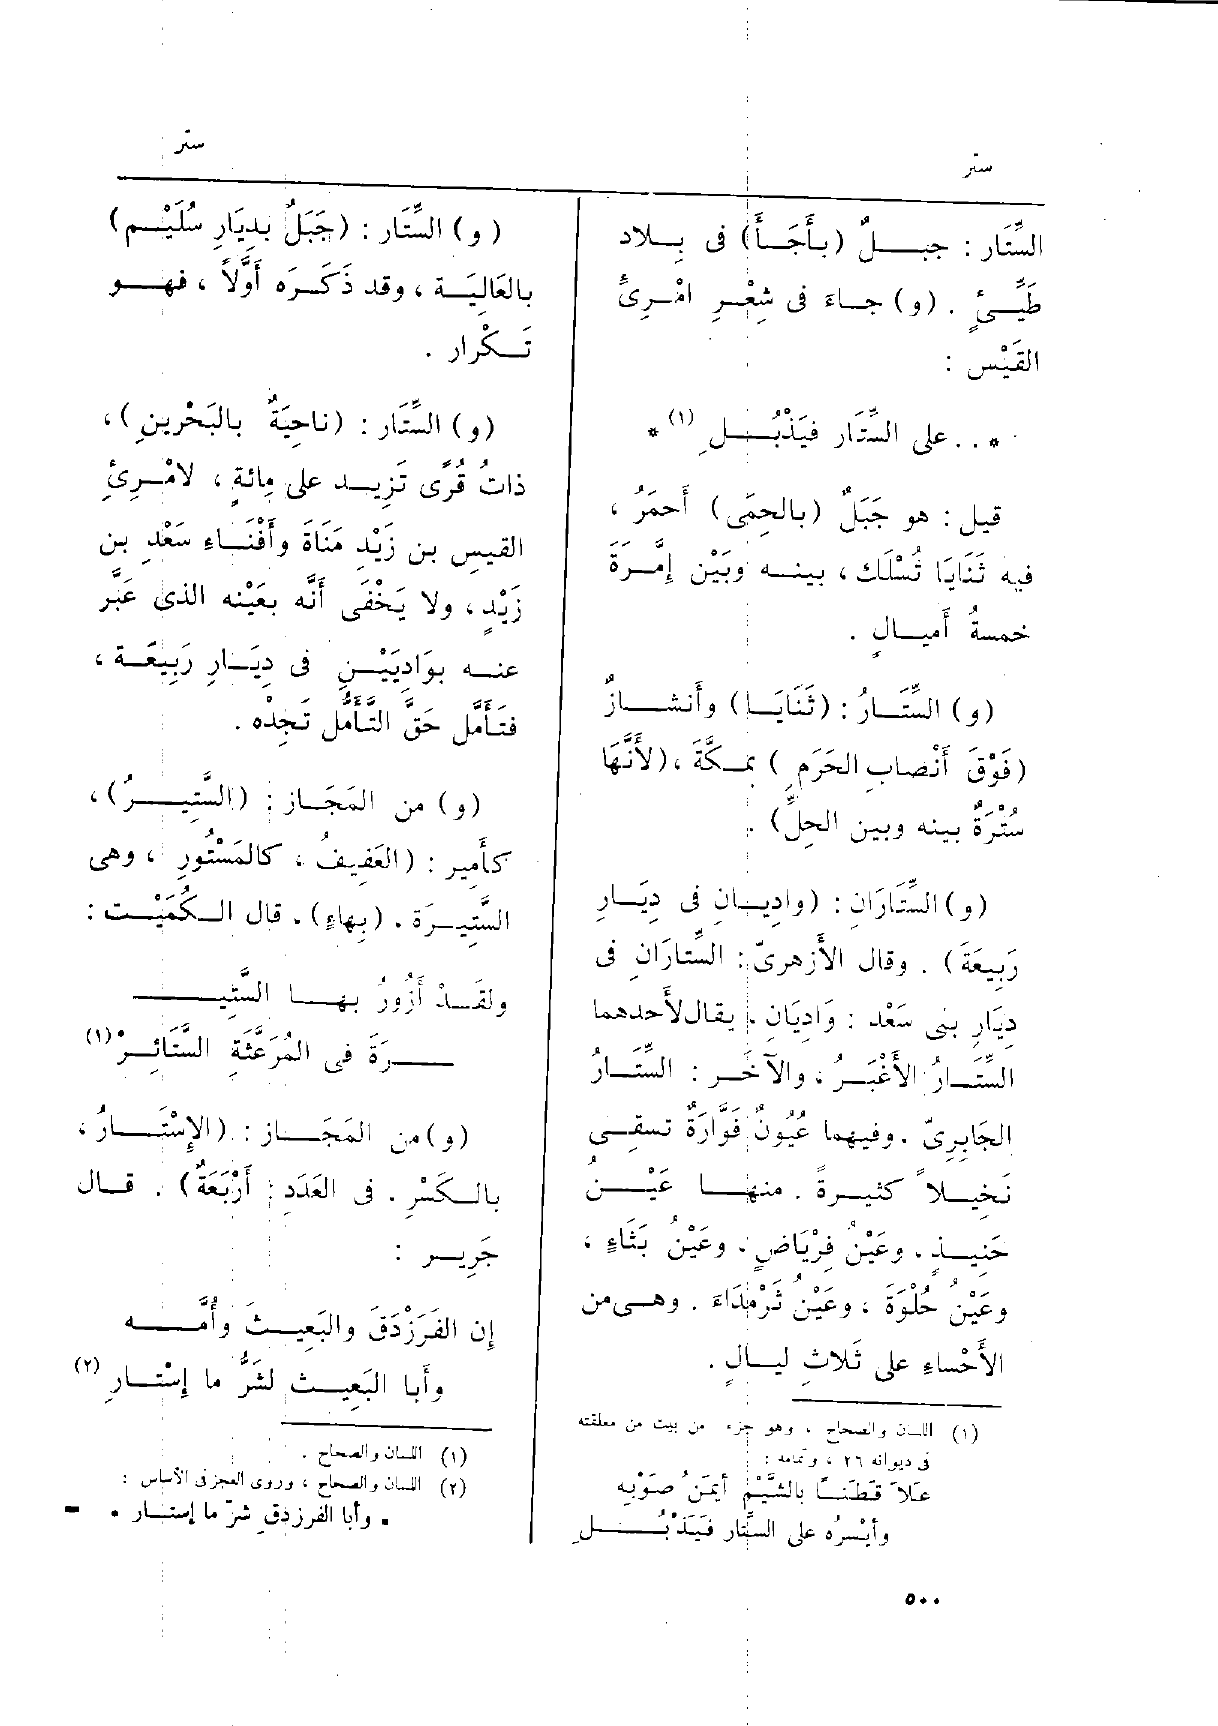 ستر
ستر
السِّتَار : جبــلٌ (بأَجَــأَ) فى بــلاد
طَيِّـئٍ . (و) جــاءَ فى شِعْـرِ امْـرِئِ
القَيْس :
* . . على السِّتَار فيَذْبُــلِ (١) *
قيل : هو جَبَلٌ (بالحِمَى) أَحمَرُ ،
فيه ثَنَايَا تُسْلَك ، بينــه وبَيْن إِمَّرَةَ
خمسةُ أَميــالٍ .
(و) السِّتَــارُ : (ثَنَايَــا) وأَنشــازٌ
(فَوْقَ أَنْصابِ الحَرَمِ ) بمــكَّةَ ، (لأَنَّهَا
سُتْرَةٌ بينه وبين الحِلِّ) .
(و) السِّتَارَانِ : (وادِيــانِ فى دِيَــارِ
رَبِيعَةَ) . وقال الأَزهرىّ : السِّتارَانِ فى
دِيَارِ بنى سَعْد : وَادِيَانِ . يقال لأَحدهما
السِّتَــارُ الأَغْبَــرُ ، والآخَــر : السِّتَــارُ
الجَابِرِىّ . وفيهما عُيُونٌ فَوَّارَةٌ تسقِــى
نَخِيــلاً كثيــرةً . منهــا عَيْــنُ
حَنِيــذٍ . وعَيْنُ فِرْيَاضٍ . وعَيْنُ بَثَاءٍ ،
وعَيْنُ حُلْوَةَ ، وعَيْنُ ثَرْمَدَاءَ . وهــى من
الأَحْساءِ على ثَلاثِ ليــالٍ .
(١) اللسان والصحاح ، وهو جزء من بيت من معلقته
فى ديوانه ٢٦ ، وتمامه :
عَلاَ قَطَنــًا بالشَّيْمِ أَيمَنُ صَوْبِه
وأَيْسَرُه على السِّتَار فَيَذْبُــــلِ
(و) السِّتَار : (جَبَلٌ بدِيَارِ سُلَيْــم)
بالعَالِيَــة ، وقد ذَكَــرَه أَوَّلاً ، فهــو
تَــكْرار .
(و) السِّتَار : (ناحِيَةٌ بالبَحْرينِ) ،
ذاتُ قُرًى تَزِيــد على مِائةٍ ، لامْــرِئِ
القيسِ بن زَيْدِ مَنَاةَ وأَفْنَــاءِ سَعْدِ بن
زَيْدٍ ، ولا يَخْفَى أَنَّه بعَيْنه الذى عَبَّر
عنــه بوَادِيَيْــنِ فى دِيَــارِ رَبِيعَــة ،
فتَأَمَّل حَقَّ التَّأَمُّل تَجِدْه .
(و) من المَجَــاز : (السَّتِيــــرُ) ،
كأَمِير : (العَفِيفُ ، كالمَسْتُورِ ، وهى
السَّتِيــرَة . (بِهاءٍ) . قال الــكُمَيْــت :
ولقَــدْ أَزُورُ بهــا السَّتِيــــ
ــــرَةَ فى المُرَعَّثَةِ السَّتَائِــرْ (١)
(و) من المَجَــاز : (الإِسْتَــارُ ،
بالــكَسْرِ . فى العَدَدِ : أَرْبَعَةٌ) . قــال
جَرِيــر :
إن الفَرَزْدَقَ والبَعِيــثَ وأُمَّــــه
وأَبا البَعِيــث لشَرُّ ما إِسْتــارِ (٢)
(١) اللسان والصحاح .
(٢) اللسان والصحاح ، وروى العجز فى الأساس :
• وأبا الفرزدقِ شرّ ما إستــار •
٥٠٠